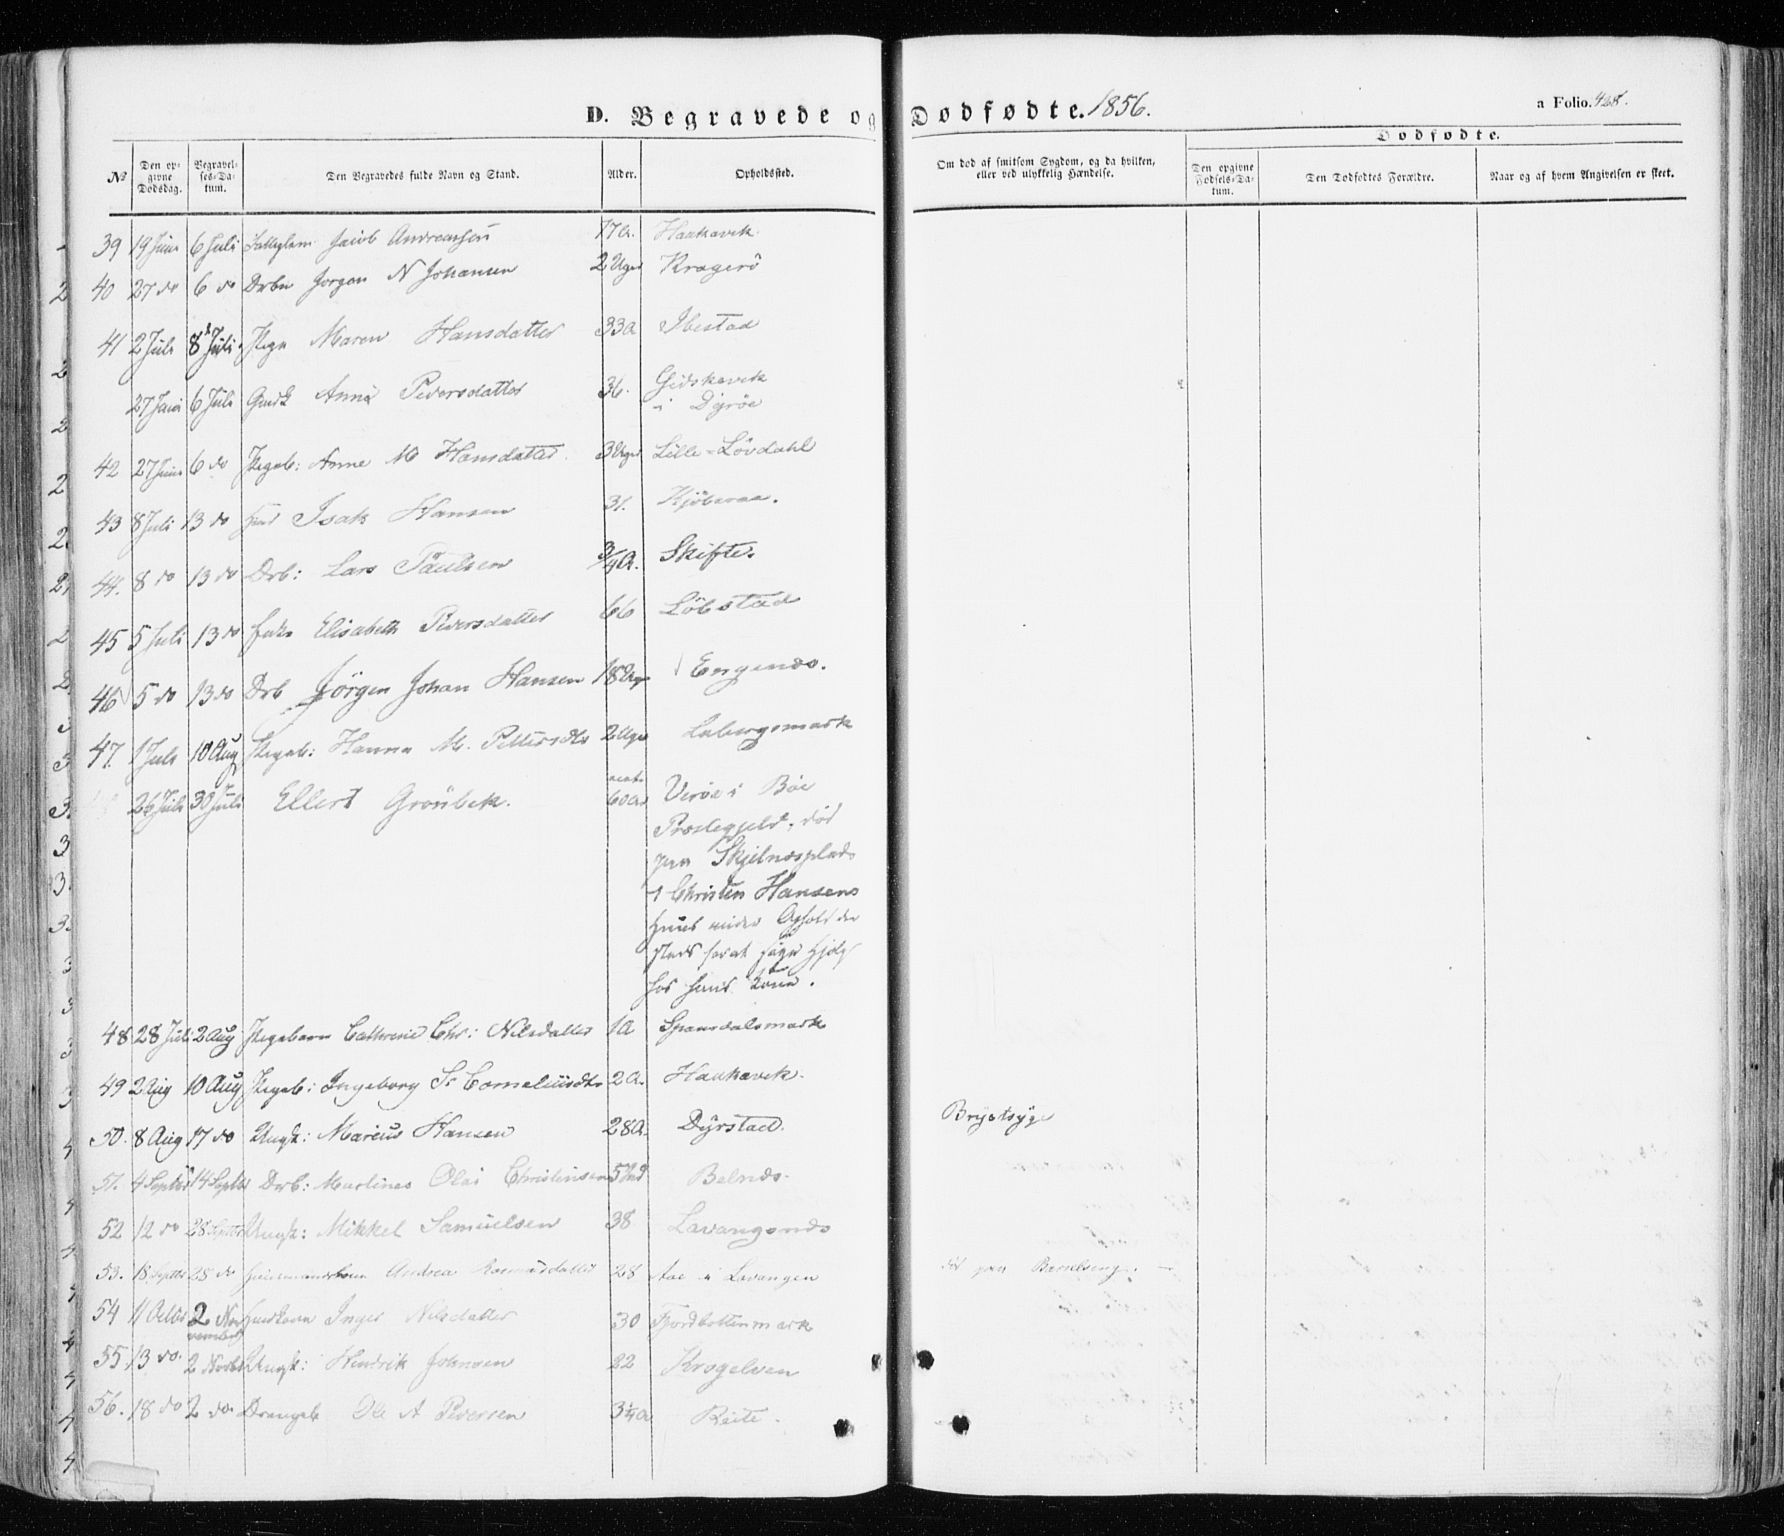 D. Begravede og Dødfødte. 1856.
a Folio. 428.
Dødfødte.
No
Den opgivne Dødsdag.
Begravelses-Datum.
Den Begravedes fulde Navn og Stand.
Alder.
Opholdssted.
Om død af smitsom Sygdom, og da hvilken, eller ved ulykkelig Hændelse.
Den opgivne Fødsels-Datum.
Den Dødfødtes Forældre.
Naar og af hvem Angivelsen er skeet.
39 19 Juni 6 Juli Jacob Andreassen 17 A. Haukavik.
40 27 do 6 do Drbn Jørgen N Johansen 2 Uger Kragerö
41 2 Juli 8 Juli Pige Maren Hansdatter 33 A Ibestad
27 Juni 6 Juli Anna Pedersdatter 36. Gidskavik
i Dyröe
42 27 Juni 6 do Pigeb: Anne M Hansdatter. 3 Uger Lille-Lövdahl
43 8 Juli 13 do Isak Hansen 31.
44. 8 do 13 do Drb: Lars Paulsen 3/4 A. Skifte.
45 5 Juli 13 do Enke Elisabeth Pedersdatter 66 Löbstad
46 5 do 13 do Drb Jörgen Johan Hansen 18 Uger Engenæs.
47. 1 Juli 10 Aug Pigeb: Hanna M. Pettersdtr 2 Uger Labergsmark
26 Juli 30 Juli Ellert Grönbek. 60 Aar Veröe i Böe
Præstegjeld, död
paa Skjelnesplads
i Christen Hansens
Huus under Ophold der
steds for at søge Hjelp
hos hans Kone.
48 28 Juli 2 Aug Pigebarn Cathrine Chr: Nilsdatter 1 A Spansdalsmark
49 2 Aug 10 Aug Pigeb: Ingeborg S. Corneliusdtr 2 A. Haukavik.
50. 8 Aug 17 do Ungk: Marius Hansen 28 A. Dyrstad. Brystsyge
51. 4 Septbr 14 Septbr Drb: Martines Olai Christensen 5 Belnæs.
52 12 do 28 Septbr Ungk: Mikkel Samuelsen 38 Lavangsnæs
53. 18 Septbr 28 do Huusmandskone Andrea Rasmusdatter 28 Aae i Lavangen död paa Barselseng.
54 11 Octbr 2 November Huuskone Inger Nilsdatter 30 Fjordbottenmark
55 13 do. 2 Novbr Ungk: Hendrik Johnsen 22 Krogelven
56. 18 do 2 do. Drengeb Ole A Pedersen 3 1/4 A Röite.